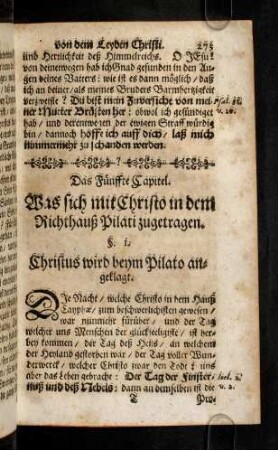 von dem Leyden Christi. 275
und Herrlichkeit deß Himmelreichs. O JEsu!
von deinetwegen hab ich Gnad gefunden in den Au-
gen deines Vatters: wie ist es dann möglich / daß
ich an deiner / als meines Bruders Barmhertzigkeit
verzweifle? Du bist mein Zuversicht von mei-
ner Mutter Brüsten her: obwol ich gesündiget
hab / und derentwegen der ewigen Straff würdig
bin / dannoch hoffe ich auff dich / laß mich
nimmermehr zu schanden werden.
Das Fünffte Capitel.
Was sich mit Christo in dem
Richthauß Pilati zugetragen.
§. 1.
Christus wird beym Pilato an-
geklagt.
DIe Nacht / welche Christo in dem Hauß
Cayphæ / zum beschwerlichsten gewesen /
war nunmehr fürüber / und der Tag
welcher uns Menschen der glückseeligste / ist her-
bey kommen / der Tag deß Heils / an welchem
der Heyland gestorben war / der Tag voller Wun-
derwerck / welcher Christo zwar den Todt / uns
aber das Leben gebracht: Der Tag der Finster-
nuß und deß Nebels: dann an demselben ist die
v. 2.